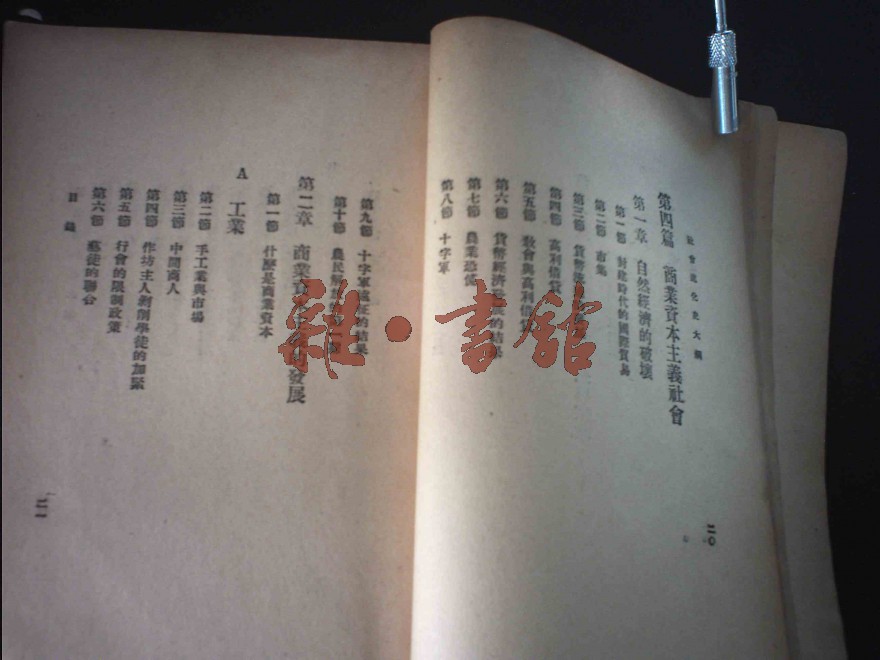 社會進化史大綱
第四篇 商業資本主義社會
第一章 自然經濟的破壞
第一節 封建時代的國際貿易
第二節 市集
第三節 貨幣
第四節 高利借貸
第五節 教會與高利借貸
第六節 貨幣經濟發展的結果
第七節 農業恐慌
第八節 十字軍
二〇
第九節 十字軍遠征的結果
第十節 農民
第二章 商業資本主義的發展
A 工業
第一節 什麼是商業資本
第二節 手工業與市場
第三節 中間商人
第四節 作坊主人剝削學徒的加緊
第五節 行會的限制政策
第六節 藝徒的聯合
目錄
二一
雜·書館